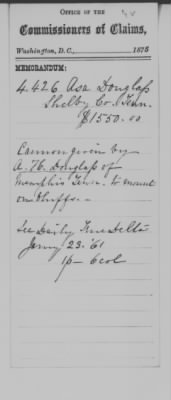 OFFICE OF THE
Commissioners of Claims,
Washington, D. C., 1875
MEMORANDUM:
4.426 Asa Douglass
Shelby Co. Tenn.
$1550.00
Cannon given by
A. H. Douglass of
Memphis Tenn. to mount
on bluffs.-
See Daily True Delta
Jany 23. '61
1p - 6 col